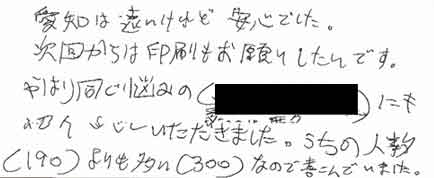 愛知は遠いけれど安心でした。
次回からは印刷もお願いしたいです。
やはり同じ悩みの(　)にも
いただきました。うちの人数
(190)よりも多い(300)なので喜こんでいました。